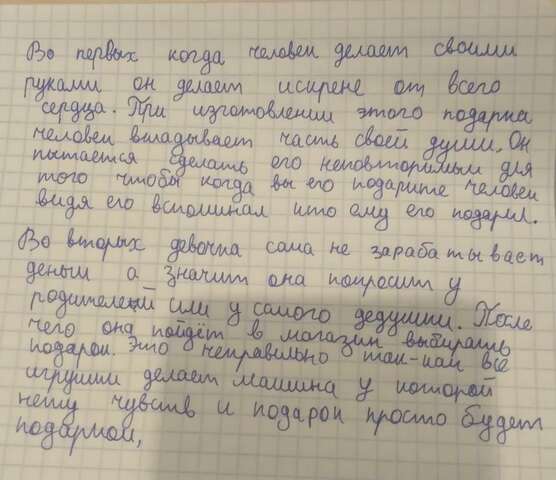 Во первых когда человек делает своими
руками он делает искрене от всего
сердца. При изготовлении этого подарка
человек вкладывает часть своей души. Он
пытается сделать его неповторимым для
того чтобы когда вы его подарите человек
видя его вспоминал кто ему его подарил.
Во вторых девочка сама не зарабатывает
деньги а значит она попросит у
родителей или у самого дедушки. После
чего она пойдёт в магазин выбирать
подарок. Это неправильно так-как все
игрушки делает машина у которой
нету чувств и подарок просто будет
подаркой,